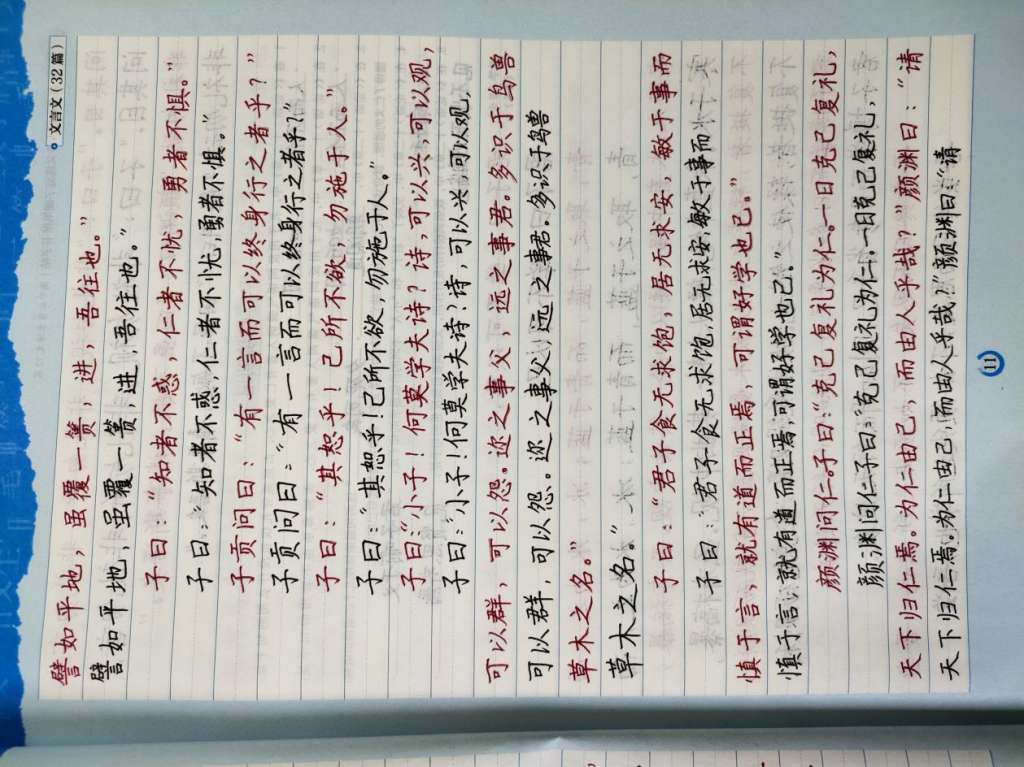 文言文（32篇）
譬如平地，虽覆一篑，进，吾往也。”
譬如平地，虽覆一篑，进，吾往也。”
子曰：“知者不惑，仁者不忧，勇者不惧。”
子曰：“知者不惑，仁者不忧，勇者不惧。”
子贡问曰：“有一言而可以终身行之者乎？”
子贡问曰：“有一言而可以终身行之者乎？”
子曰：“其恕乎！己所不欲，勿施于人。”
子曰：“其恕乎！己所不欲，勿施于人。”
子曰：“小子！何莫学夫诗？诗，可以兴，可以观，
子曰：“小子！何莫学夫诗？诗，可以兴，可以观，
可以群，可以怨。迩之事父，远之事君。多识于鸟兽
可以群，可以怨。迩之事父，远之事君。多识于鸟兽
草木之名。”
草木之名。”
子曰：“君子食无求饱，居无求安，敏于事而
子曰：“君子食无求饱，居无求安，敏于事而
慎于言，就有道而正焉，可谓好学也已。”
慎于言，就有道而正焉，可谓好学也已。”
颜渊问仁。子曰：“克己复礼为仁。一日克己复礼，
颜渊问仁。子曰：“克己复礼为仁。一日克己复礼，
天下归仁焉。为仁由己，而由人乎哉？”颜渊曰：“请
天下归仁焉。为仁由己，而由人乎哉？”颜渊曰：“请
11